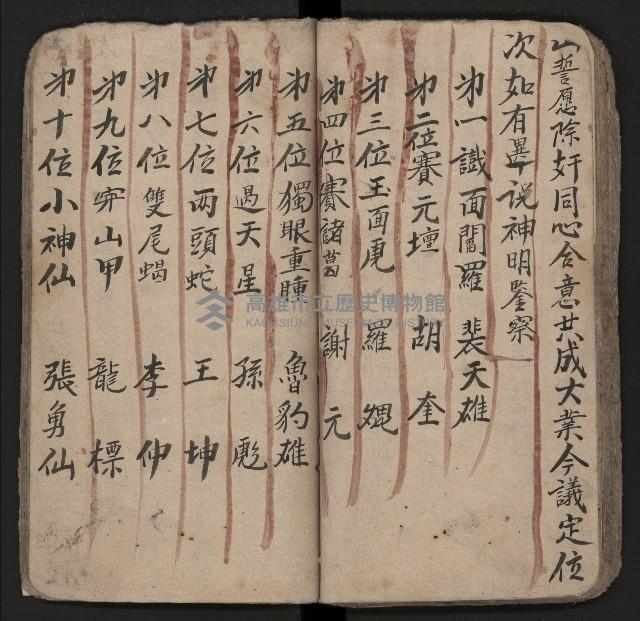 山誓愿除奸同心合意共成大業今議定位
次如有異說神明鑒察
弟一識面閻羅 裴天雄
弟二位賽元壇 胡奎
弟三位玉面虎 羅焜
弟四位賽諸葛 謝元
弟五位獨眼重瞳 魯豹雄
弟六位過天星 孫彪
弟七位两頭蛇 王坤
弟八位雙尾蝎 李仲
弟九位穿山甲 龍標
弟十位小神仙 張勇仙
高雄市立歷史博物館
KAOHSIUNG MUSEUM OF HISTORY